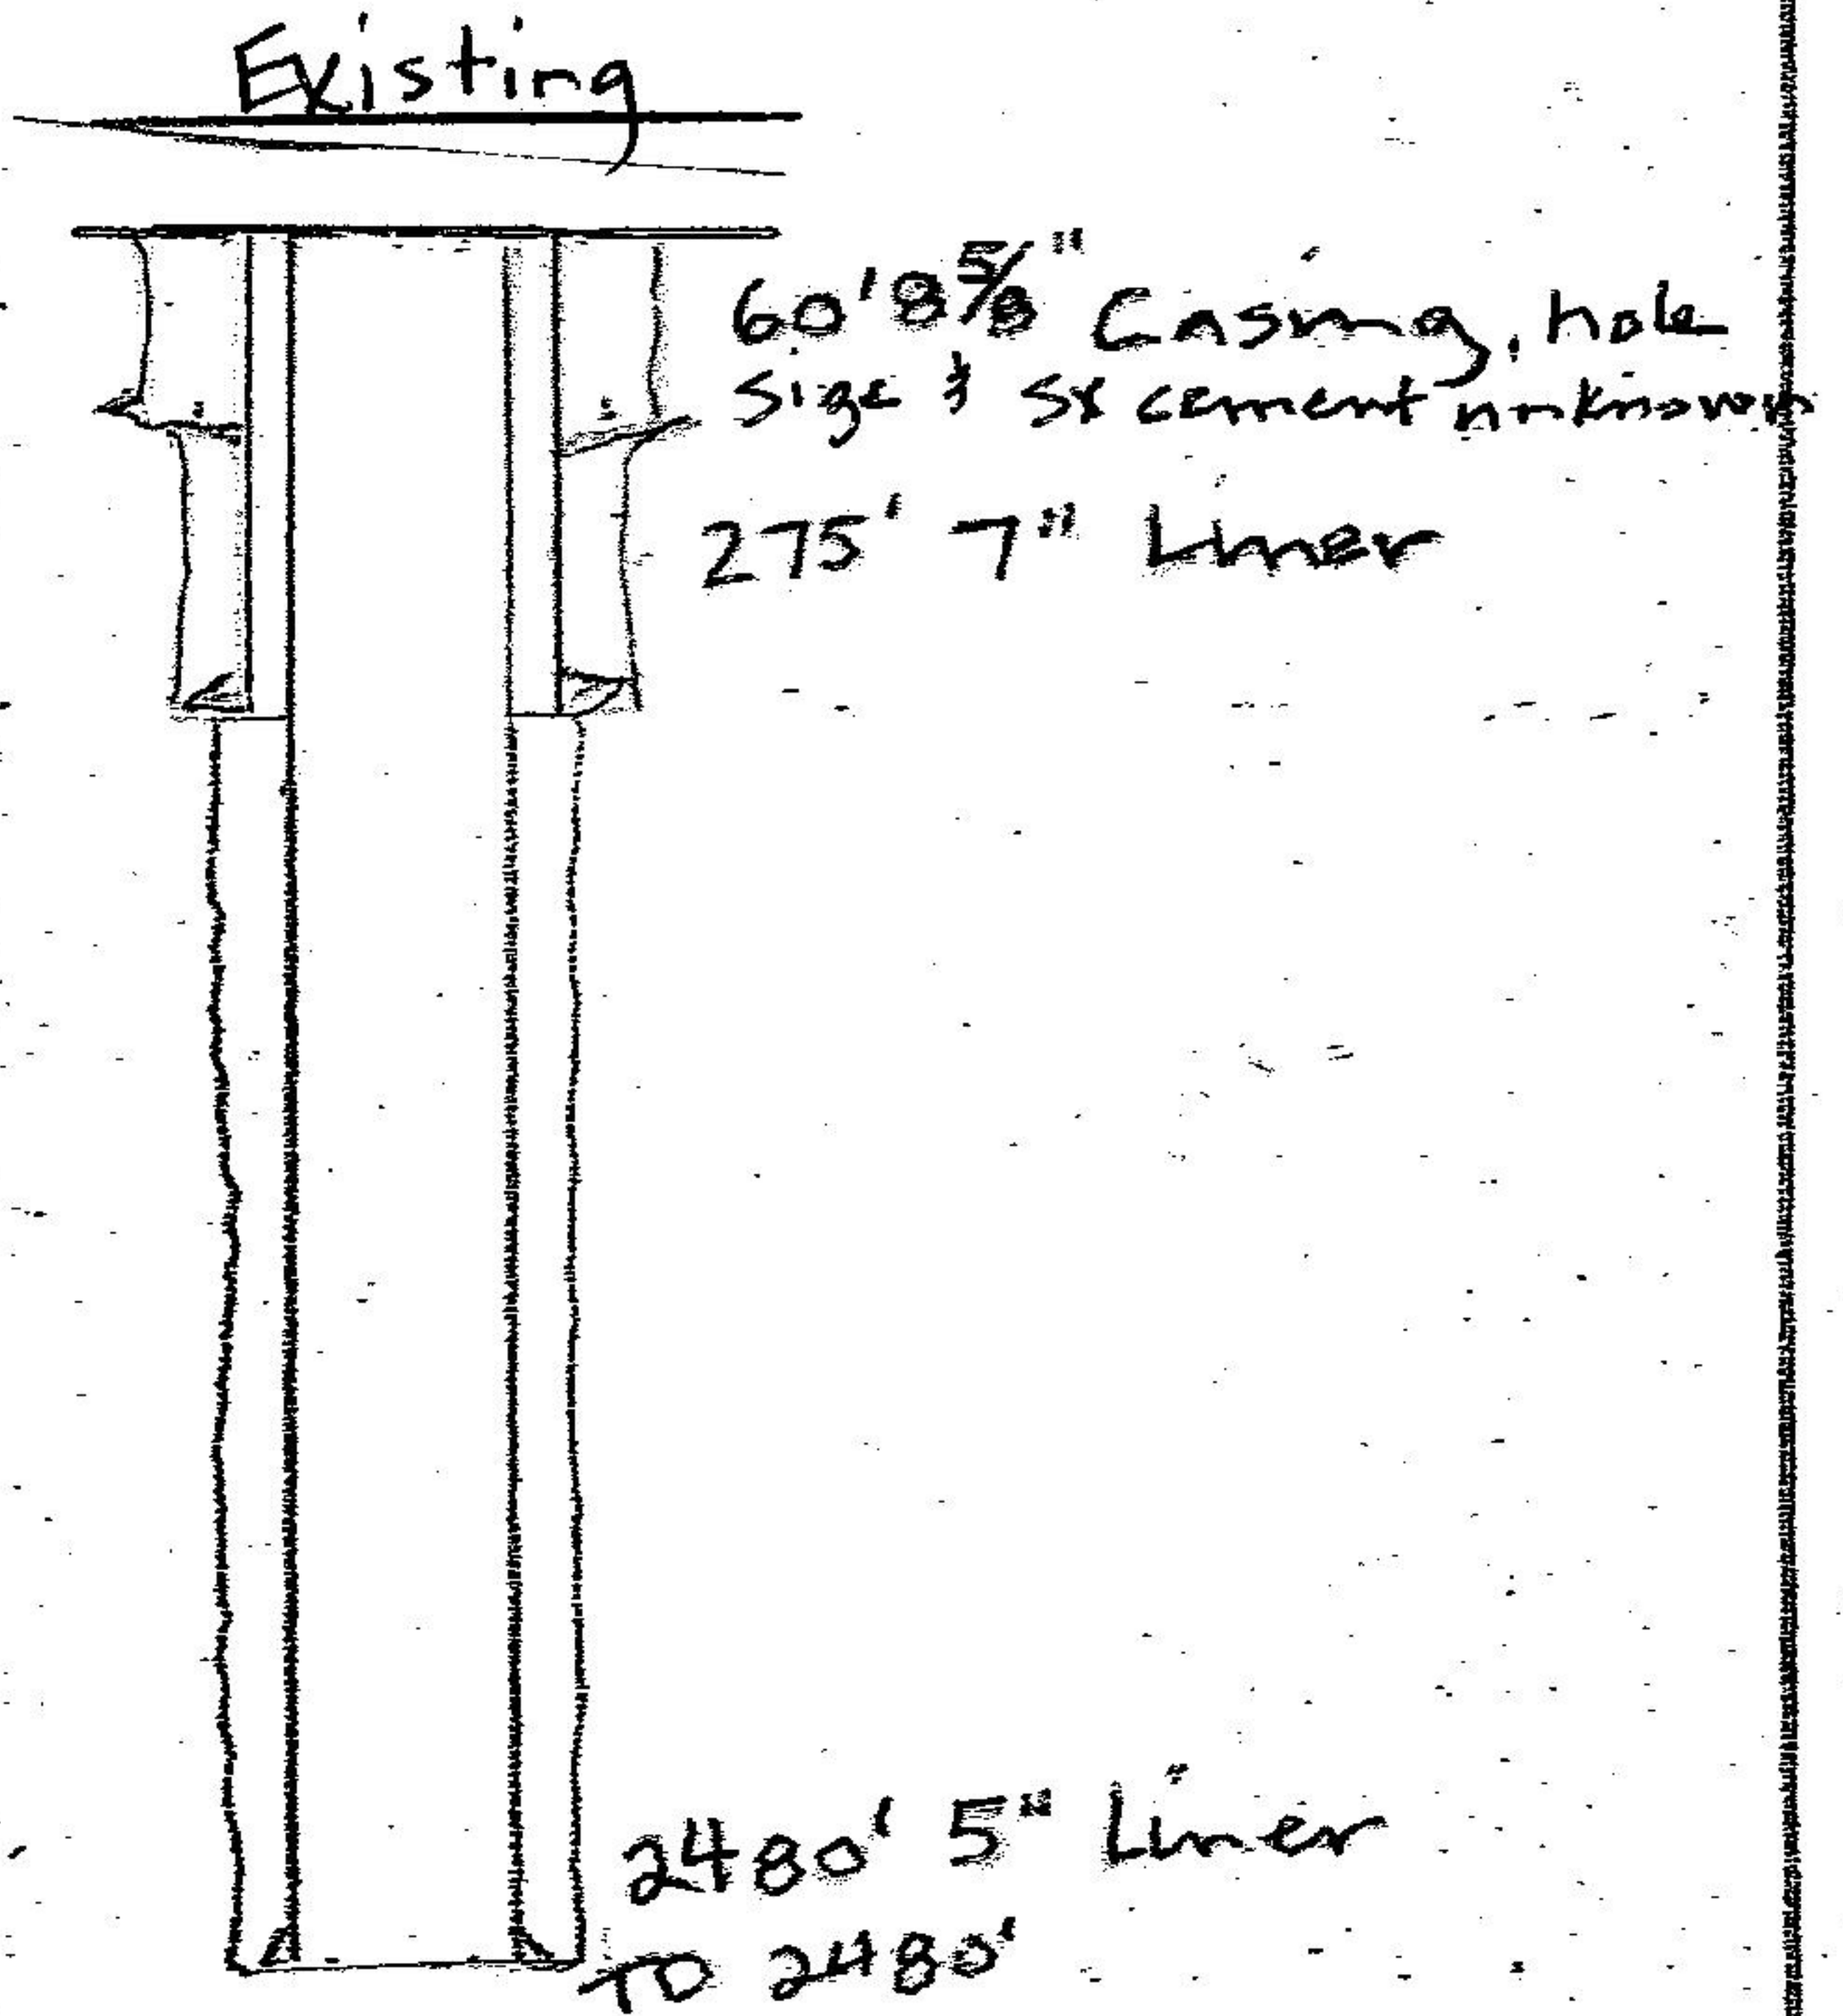 Existing
60' 8 5/8" Casing, hole
size & sx cement unknown
275' 7" Liner
2480' 5" Liner
TD 2480'